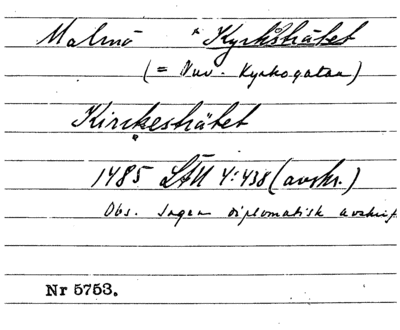 Malmö "Kyrksträtet
(= Nuv. Kyrkogatan)
Kirckesträtet
1485 LÄU 4:438 (avskr.)
Obs. Ingen diplomatisk avskrift
Nr 5753.